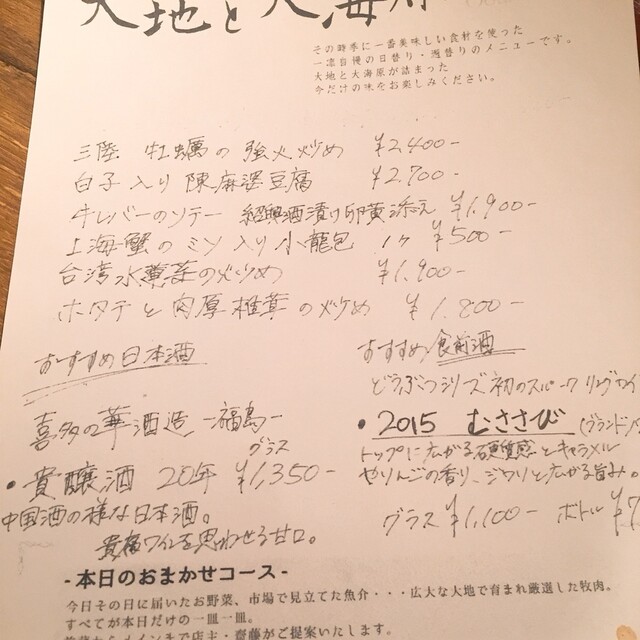 大地と大海原
その時季に一番美味しい食材を使った
一凛自慢の日替り・週替りのメニューです。
大地と大海原が詰まった
今だけの味をお楽しみください。
三陸 牡蠣の強火炒め ¥2,400-
白子入り陳麻婆豆腐 ¥2,700-
牛レバーのソテー 紹興酒漬け卵黄添え ¥1,900-
上海蟹のミソ入り小龍包 1ヶ ¥500-
台湾水蓮菜の炒め ¥1,900-
ホタテと肉厚椎茸の炒め ¥1,800-
おすすめ日本酒
喜多の華酒造 -福島-
グラス
• 貴醸酒 20年 ¥1,350-
中国酒の様な日本酒。
貴腐ワインを思わせる甘口。
おすすめ食前酒
どうぶつシリーズ初のスパークリングワイ
• 2015 むささび (グランドパ
トップに広がる硬質感とキャラメル
やりんごの香り、ジワリと広がる旨み。
グラス ¥1,100- ボトル ¥7
-本日のおまかせコース-
今日その日に届いたお野菜、市場で見立てた魚介・・・広大な大地で育まれ厳選した牧肉。
すべてが本日だけの一皿一皿。
前菜からメインまで店主・齋藤がご提案いたします。